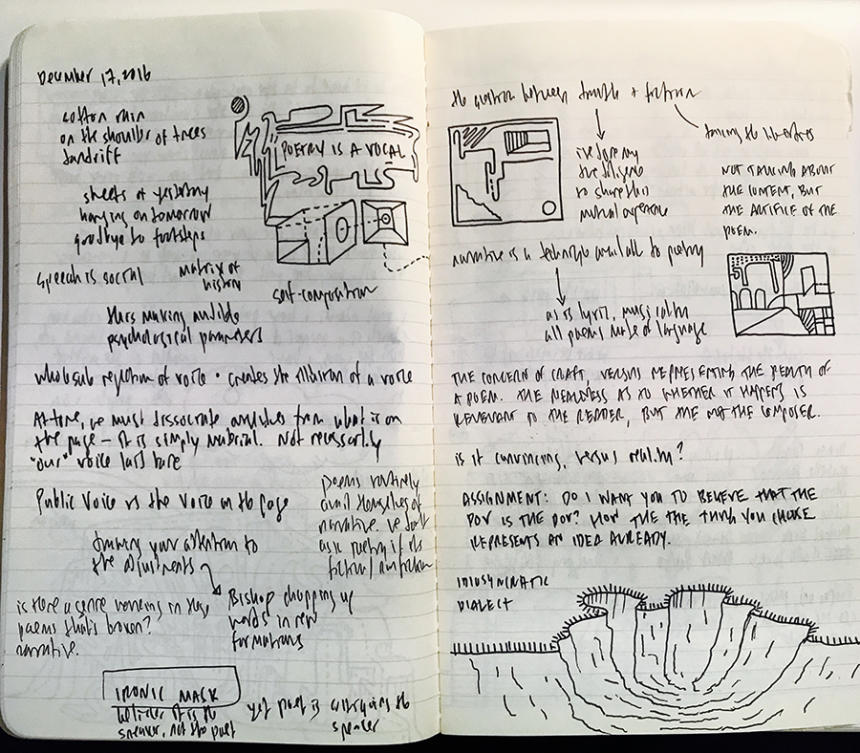 December 17, 2016
cotton rain
on the shoulder of trees
POETRY IS A VOCAL
sheets of yesterday
hanging on tomorrow
goodbye to footsteps
Speech is social
matrix of
history
self-composition
thus making audible
psychological parameters
of voice • creates the illusion of a voice
we must dissociate ourselves from what is on
the page — it is simply material. Not necessarily
"our" voice laid bare
Public voice vs the voice on the page
poems routinely
avail themselves of
narrative. we don't
ask poetry if it's
fiction/nonfiction
turning your attention to
the adjustments
Bishop chopping up
words in new
formations
is there a genre working in these
poems that's broken?
narrative.
IRONIC MASK
believer it is the
speaker, not the poet
yet poet is the
speaker
the between truth + fiction
taking the liberties
to share this
mutual experience
NOT TALKING ABOUT
THE CONTENT, BUT
THE ARTIFICE OF THE
POEM.
narrative is a technique available to poetry
as is lyric, musicality
all poems made of language
THE CONCERN OF CRAFT, VERSUS REPRESENTING THE REALITY OF
A POEM. THE REALNESS AS TO WHETHER IT HAPPENS IS
RELEVANT TO THE READER, BUT THE NOT THE COMPOSER.
is it convincing, versus reality?
ASSIGNMENT: DO I WANT YOU TO BELIEVE THAT THE
POV IS THE POV? HOW THE THE THING YOU CHOSE
REPRESENTS AN IDEA ALREADY.
IDIOSYNCRATIC
DIALECT